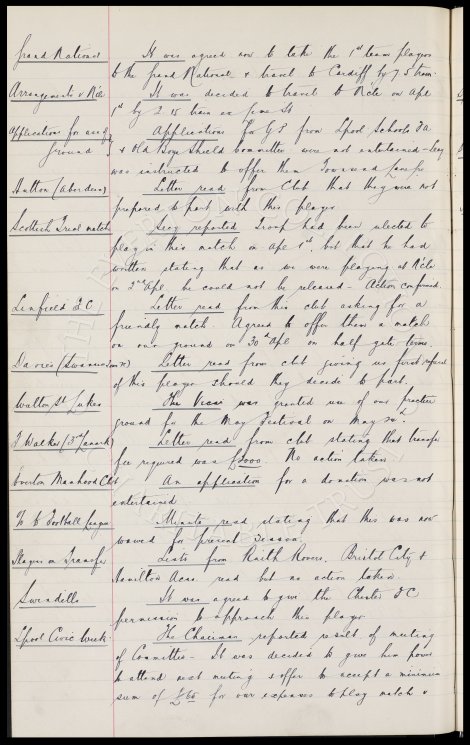 Grand National It was agreed now to take the 1st team players
to the Grand National & travel to Cardiff by 7.5 train.
Arrangements v N'cle It was decided to travel to N'cle on Apl
1st by 2.15 train ex Lime St
Application for use of Applications for G.P. from Lpool Schools F.A
Ground & Old Boys Shield Committee were not entertained - Secy
was instructed to offer them Townsend Lane for
Hutton (Aberdeen) Letter read from Club that they were not
prepared to part with this player
Scottish Trial match Secy reported Troup had been selected to
play in this match on Apl 1st, but that he had
written stating that as we were playing at N'cle
on 3rd Apl he could not be released - Action confirmed.
Linfield F.C Letter read from this club asking for a
friendly match. Agreed to offer them a match
on our ground on 30th Apl on half gate terms.
Davies (Swansea Town) Letter read from club giving us first refusal
of this player should they decide to part.
Walton St Lukes The Vicar was granted use of our practice
ground for the May Festival on May 20th.
J Walker (3rd Lanark) Letter read from club stating that transfer
fee required was £3000. No action taken
Everton Manhood Club An application for a donation was not
entertained.
Football League Minute read stating that this was now
waived for present season.
Players on Transfer Lists from Raith Rovers, Bristol City &
Hamilton Acas read but no action taken.
Swindells It was agreed to give the Chester F.C
permission to approach this player
Lpool Civic Week The Chairman reported result of meeting
of Committee - It was decided to give him power
to attend next meeting & offer to accept a minimum
sum of for our expenses to play match v